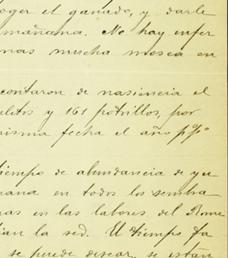 oger el ganado, y darle
mañana. No hay enfer
mas mucha mosca en
contaron de nasimiein el
ulitos y 161 potrillos, por
misma fecha el año ppº
tiempo de abundancia de y
ana en todos los sembra
as en las labores del
ian la sed. El tiempo
se puede desear, se están